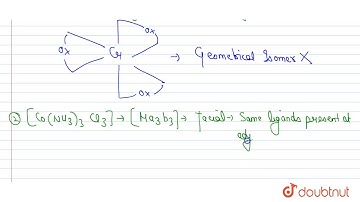 Ox
Ox Cr → Geometrical Isomer X
Ox
② [Co(NH3)3 Cl3] → [Ma3b3] → facial → Same ligands present at
adj
doubtnut